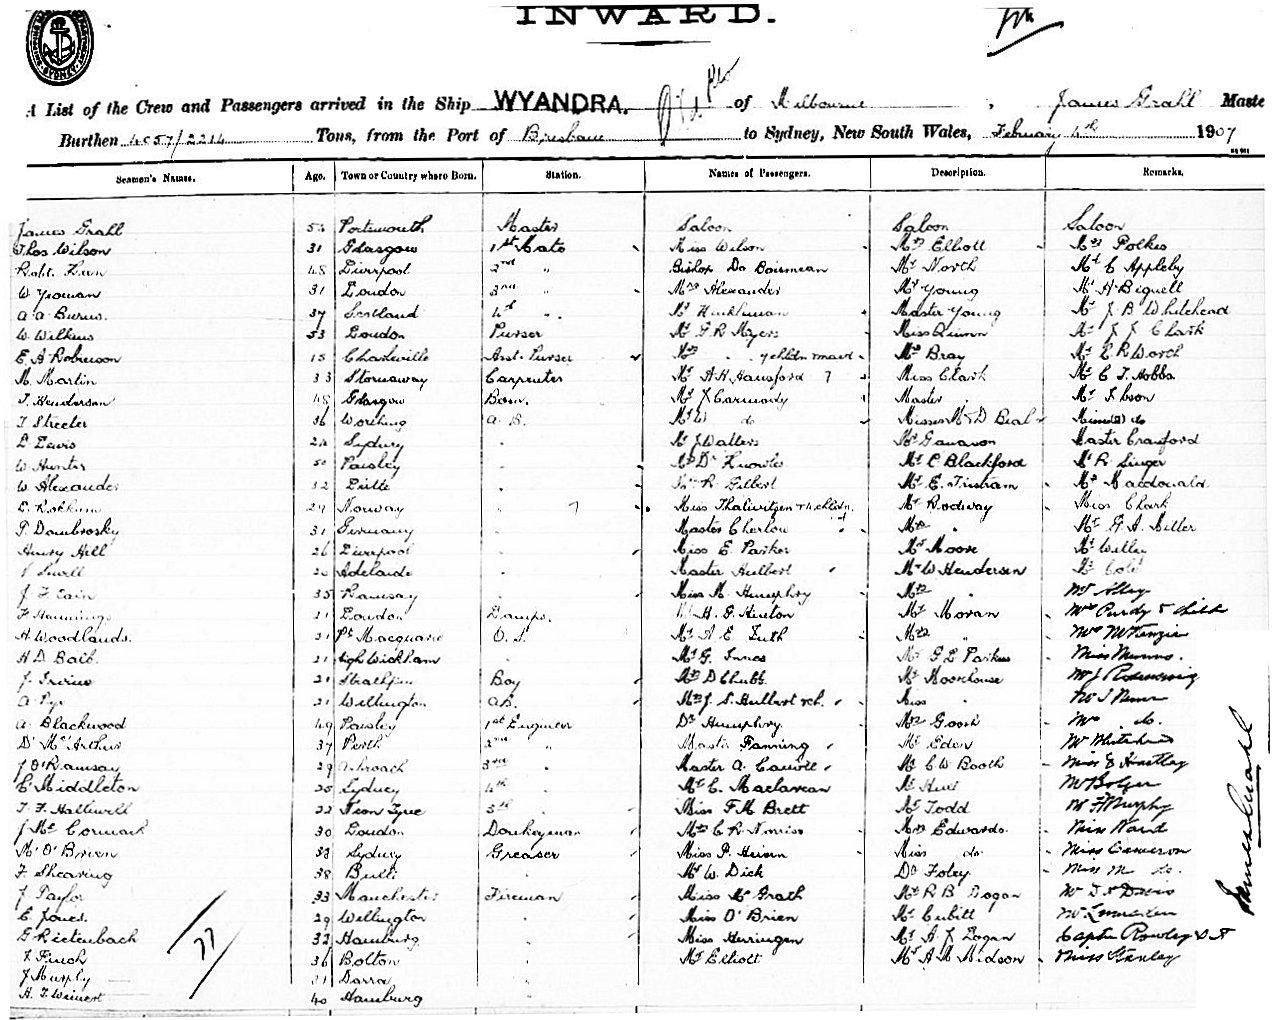 INWARD.
SYDNEY
A List of the Crew and Passengers arrived in the Ship WYANDRA. of Melbourne, James Grahl Maste
Burthen 4057/2214 Tons, from the Port of Brisbane to Sydney, New South Wales, February 4th 1907
Seamen's Names. Age. Town or Country where Born. Station. Names of Passengers. Description. Remarks.
James Grahl Portsmouth Master Saloon Saloon Saloon
Thos Wilson 31 Glasgow 1st Mate Miss Wilson Mrs Elliott Mrs Polkes
48 Liverpool 2nd " Bishop Mr North Mr C Appleby
W Yeoman 31 London 3rd " Mrs Alexander Mr Young Mr H Bignell
A A Burns. 37 Scotland 4th " Master Young Mr J B Whitehead
W Wilkins 53 London Purser Mr G R Myers Miss Quinn Mr J J Clark
E A Robinson 18 Charleville Asst Purser Mrs " Mrs Bray Mr E R Worch
M Martin 33 Stornaway Carpenter Mr A H Hansford 7 Miss Clark Mr C T Hobbs
J Henderson 48 Glasgow Bosn. Mr J Carmody Master " Mr
T Streeter 36 Worthing A.B. Mr W do Misses M & D Beal do
L Lewis 24 Sydney " Mr J Walters Master Crawford
W Hunter 50 Paisley " Mrs Dr Knowles Mr C Blackford Mr R Singer
W Alexander 32 Leith " R. Gilbert Mr E. Tristram Mr Macdonald
29 Norway " 7 Miss Mr Rodway Miss Clark
P. Dombrosky 31 Germany " Master Cherlow Mrs " Mr G A Miller
Henry Hill 26 Liverpool " Miss E Parker Mr Moore Mr Willey
20 Adelaide " Master Hulbert Mr W Henderson Mr Cole
J F Cain 35 Ramsay " Miss M. Humphry Mrs " Mr Alley
F Hemmings 21 London Lamps. H. G. Hinton Mr Moran Mrs Purdy & Child
H Woodlands. 21 Pt Macquarie O.S. Mr A E Tuth Mrs " Mrs McKenzie
H D Balb. 21 High Wickham " Mr G. Innes Mr G L Parkes Miss Munro.
J Irvine 21 Boy Mrs D Chubb Mr Moorhouse Mr J
A Pye 21 Wellington A.B. Mrs J. S. Hulbert & ch. Miss "
A Blackwood 49 Paisley 1st Engineer Dr Humphry Mrs Goosh Mrs do.
D McArthur 37 Perth 2nd " Master Fanning Mr Eden Mr Whitehead
J D Ramsay 29 Arbroach 3rd " Master A. Carroll Mr C W Booth Miss E Huntley
C Middleton 25 Sydney 4th " Mr C. Maclarean Mr Hunt Mr Bolger
T. F. Halliwell 22 N'eon Tyne 5th " Miss F M Brett Mr Todd Mr F Murphy
J McCormack 30 London Donkeyman Mrs C R Norriss Mrs Edwards. Miss Ward
M O'Brien 33 Sydney Greaser Miss P. Miss do. Miss Cameron
F Shearing 38 Bulli " Mr W. Dick Dr Foley Miss M do.
J Taylor 33 Manchester Fireman Miss McGrath Mr R B Dogan Mr
C Jones. 29 Wellington " Miss O'Brien Mr Cubitt Mr Lumsden
G Rietenbach 32 Hamburg " Miss Herringen Mr A J Logan Captn Rowley
J Finch 36 Bolton " Mr Elliott Mr A M Midson Miss Stanley
J Murphy 21 Darra "
H. J. Weinert 40 Hamburg "
77
James Grahl